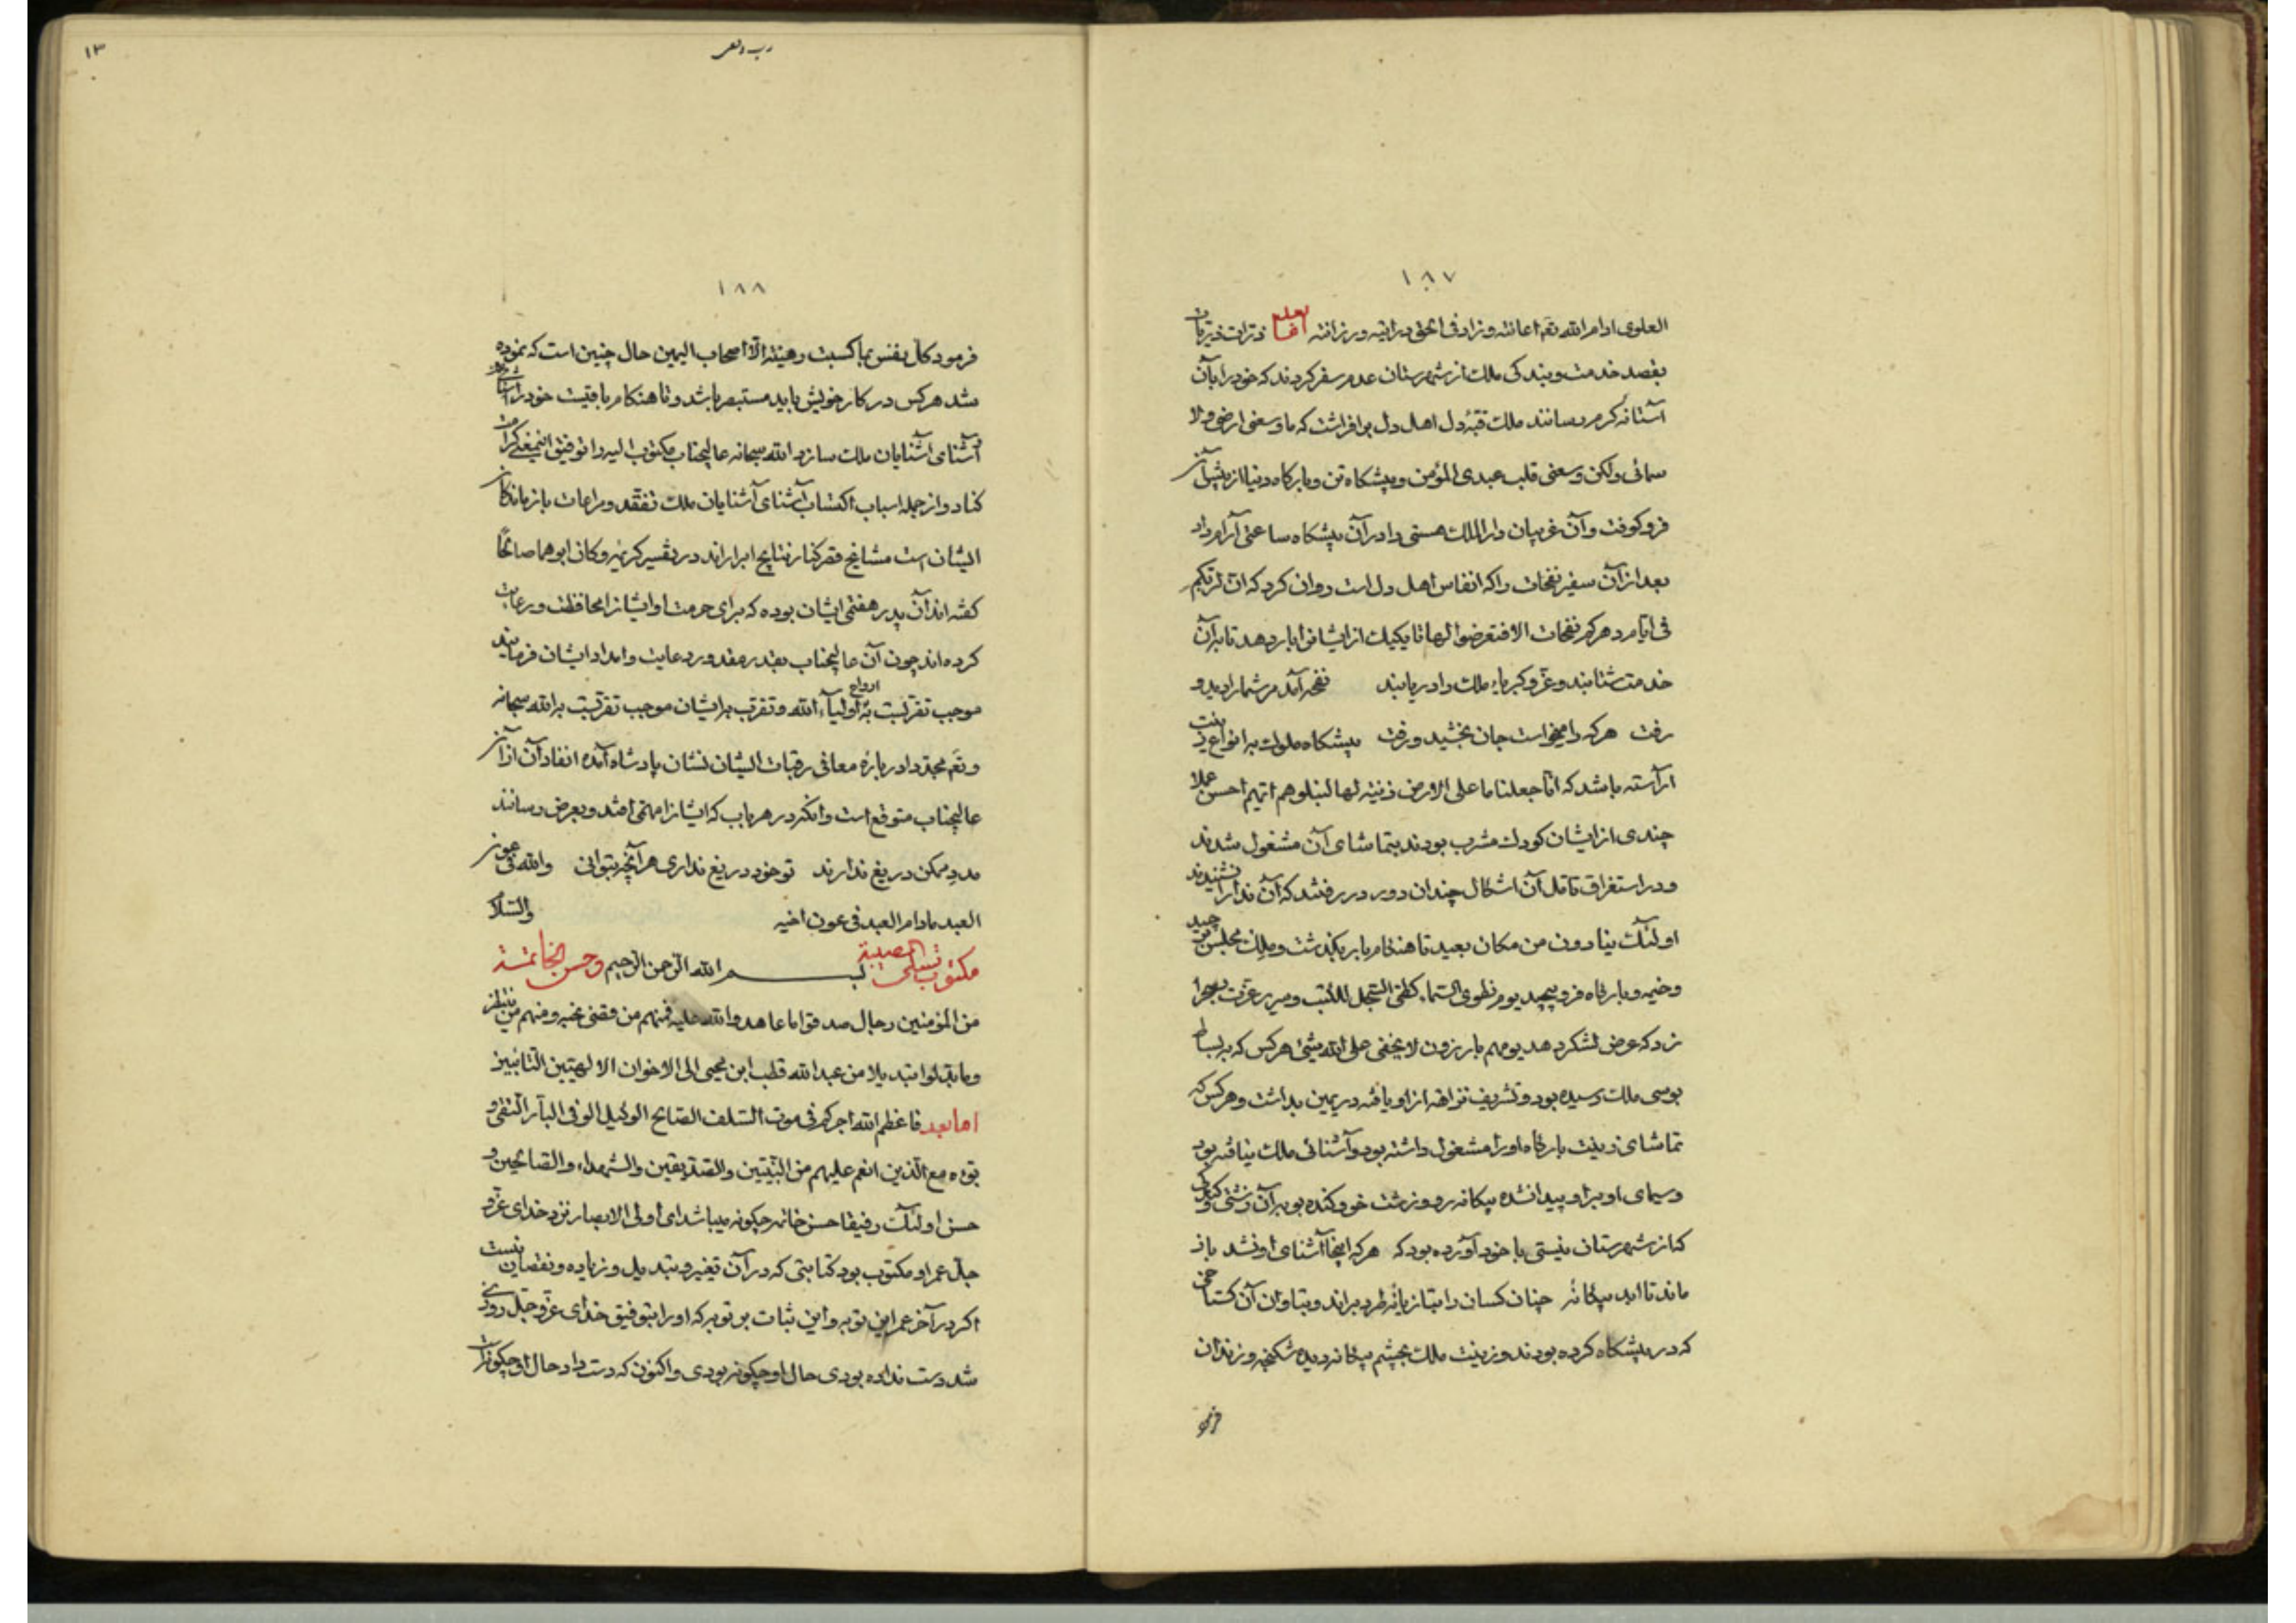 ١٨٧
العلوی ادام الله تعم اعانته وزاد فی الحق درایته ورزانته اما بعد ذرات ذریات
بقصد خدمت وبندگی ملک از شهرستان عدم سفر کردند که خود را بآن
آستانهٔ کرم رسانند ملک قبهٔ دل اهل دل برافراشت که ما وسعنی ارضی ولا
سمائی ولکن وسعنی قلب عبدی المؤمن وپیشکاه تن وبارکاه دنیا از پیش آن
فرو کوفت وآن غریبان دار الملک هستی را در آن پیشکاه ساعتی آرام داد
بعد از آن سفیر نفحات را که انفاس اهل دل است روان کرد که ان لربکم
فی ایام دهرکم نفحات الا فتعرضوا لها تا یکیک از ایشانرا بار دهد تا بر آن
خدمت شتابند وعز وکبریاء ملک را دریابند نفحه آمد مر شما را دید و
رفت هر که را میخواست جان بخشید ورفت پیشکاه ملوک به انواع زینت
آراسته باشد که انا جعلنا ما علی الارض زینة لها لنبلوهم ایهم احسن عملا
چندی از ایشان کودک مشرب بودند بتماشای آن مشغول شدند
ودر استغراق تامل آن اشکال چندان دور در رفتند که آن ندا را نشنیدند
اولئک ینادون من مکان بعید تا هنکام بار بگذشت وملک مجلس برچید
وخیمه وبارکاه فرو پیچید یوم نطوی السماء کطی السجل للکتب وسریر عزت بصحرا
زد که عرض لشکر دهد یوم هم بارزون لا یخفی علی الله شیئ هر کس که به بساط
بوسی ملک رسیده بود وتشریف نزاهه از او یافته در یمین بداشت وهر کس که
تماشای زینت بارکاه او را مشغول داشته بود وآشنائی ملک نیافته بود
وسیمای او برا و پیدا نشده بیکانه رو وزشت خو وکنده بو بر آن زشتی وکبودی
کز شهرستان نیستی با خود آورده بود که هر که اینجا آشنای او نشد باز
ماند تا ابد بیکانه چنان کسان را بتازیانهٔ طرد براند وبتاوان آن کستاخی
که در پیشکاه کرده بودند وزینت ملک بچشم بیکانه دیده شکنجه وزندان
١٣
١٨٨
فرمود کل نفس بما کسبت رهینة الا اصحاب الیمین حال چنین است که نموده
شد هر کس در کار خویش باید مستبصر باشد وتا هنکام باقیست خود را آشنا
وآشنای آشنایان ملک سازد الله سبحانه عالیجناب مکتوب الیه را توفیق اینمعنی کرامت
کناد واز جمله اسباب اکتساب آشنای آشنایان ملک تفقد ومراعات بازماندکان
ایشان است مشایخ فقر کنار نتایج ابراراند در تفسیر کریمه وکان ابوهما صالحا
کفته اند آن پدر هفتمی ایشان بوده که برای حرمت او ایشانرا محافظت ورعایت
کرده اند چون آن عالیجناب بقدر مقدور رعایت وامداد ایشان فرمایند
موجب تقربست به ارواح اولیاء الله وتقرب بر ایشان موجب تقربست بر الله سبحانه
وتعم مجددا در بارهٔ معافی رقبات ایشان نشان پادشاه آمده انفاد آن از آن
عالیجناب متوقع است وانکه در هر باب که ایشانرا مهمی افتد وبعرض رسانند
مدد ممکن دریغ ندارند تو خود دریغ نداری هر آنچه بتوانی والله فی عون
العبد مادام العبد فی عون اخیه والسلام
مکتوب تسلی المصیبة بسم الله الرحمن الرحیم وحسن الخاتمة
من المؤمنین رجال صدقوا ما عاهدوا الله علیه فمنهم من قضی نحبه ومنهم من ینتظر
وما بدلوا تبدیلا من عبد الله قطب ابن یحیی الی الاخوان الالهیین التائبین
اما بعد فاعظم الله اجرکم فی موت السلف الصالح الوکیل الوفی البار التقی و
بوءه مع الذین انعم علیهم من النبیین والصدیقین والشهداء والصالحین و
حسن اولئک رفیقا حسن خاتمه چکونه میباشد ای اولی الابصار نزد خدای عز و
جل عمر او مکتوب بود کتابتی که در آن تغیر وتبدیل وزیاده ونقصان نیست
اکر در آخر عمر این توبه واین ثبات بر توبه که او را بتوفیق خدای عز وجل روزی
شد دست نداده بودی حال او چکونه بودی واکنون که دست داد حال او چکونه است